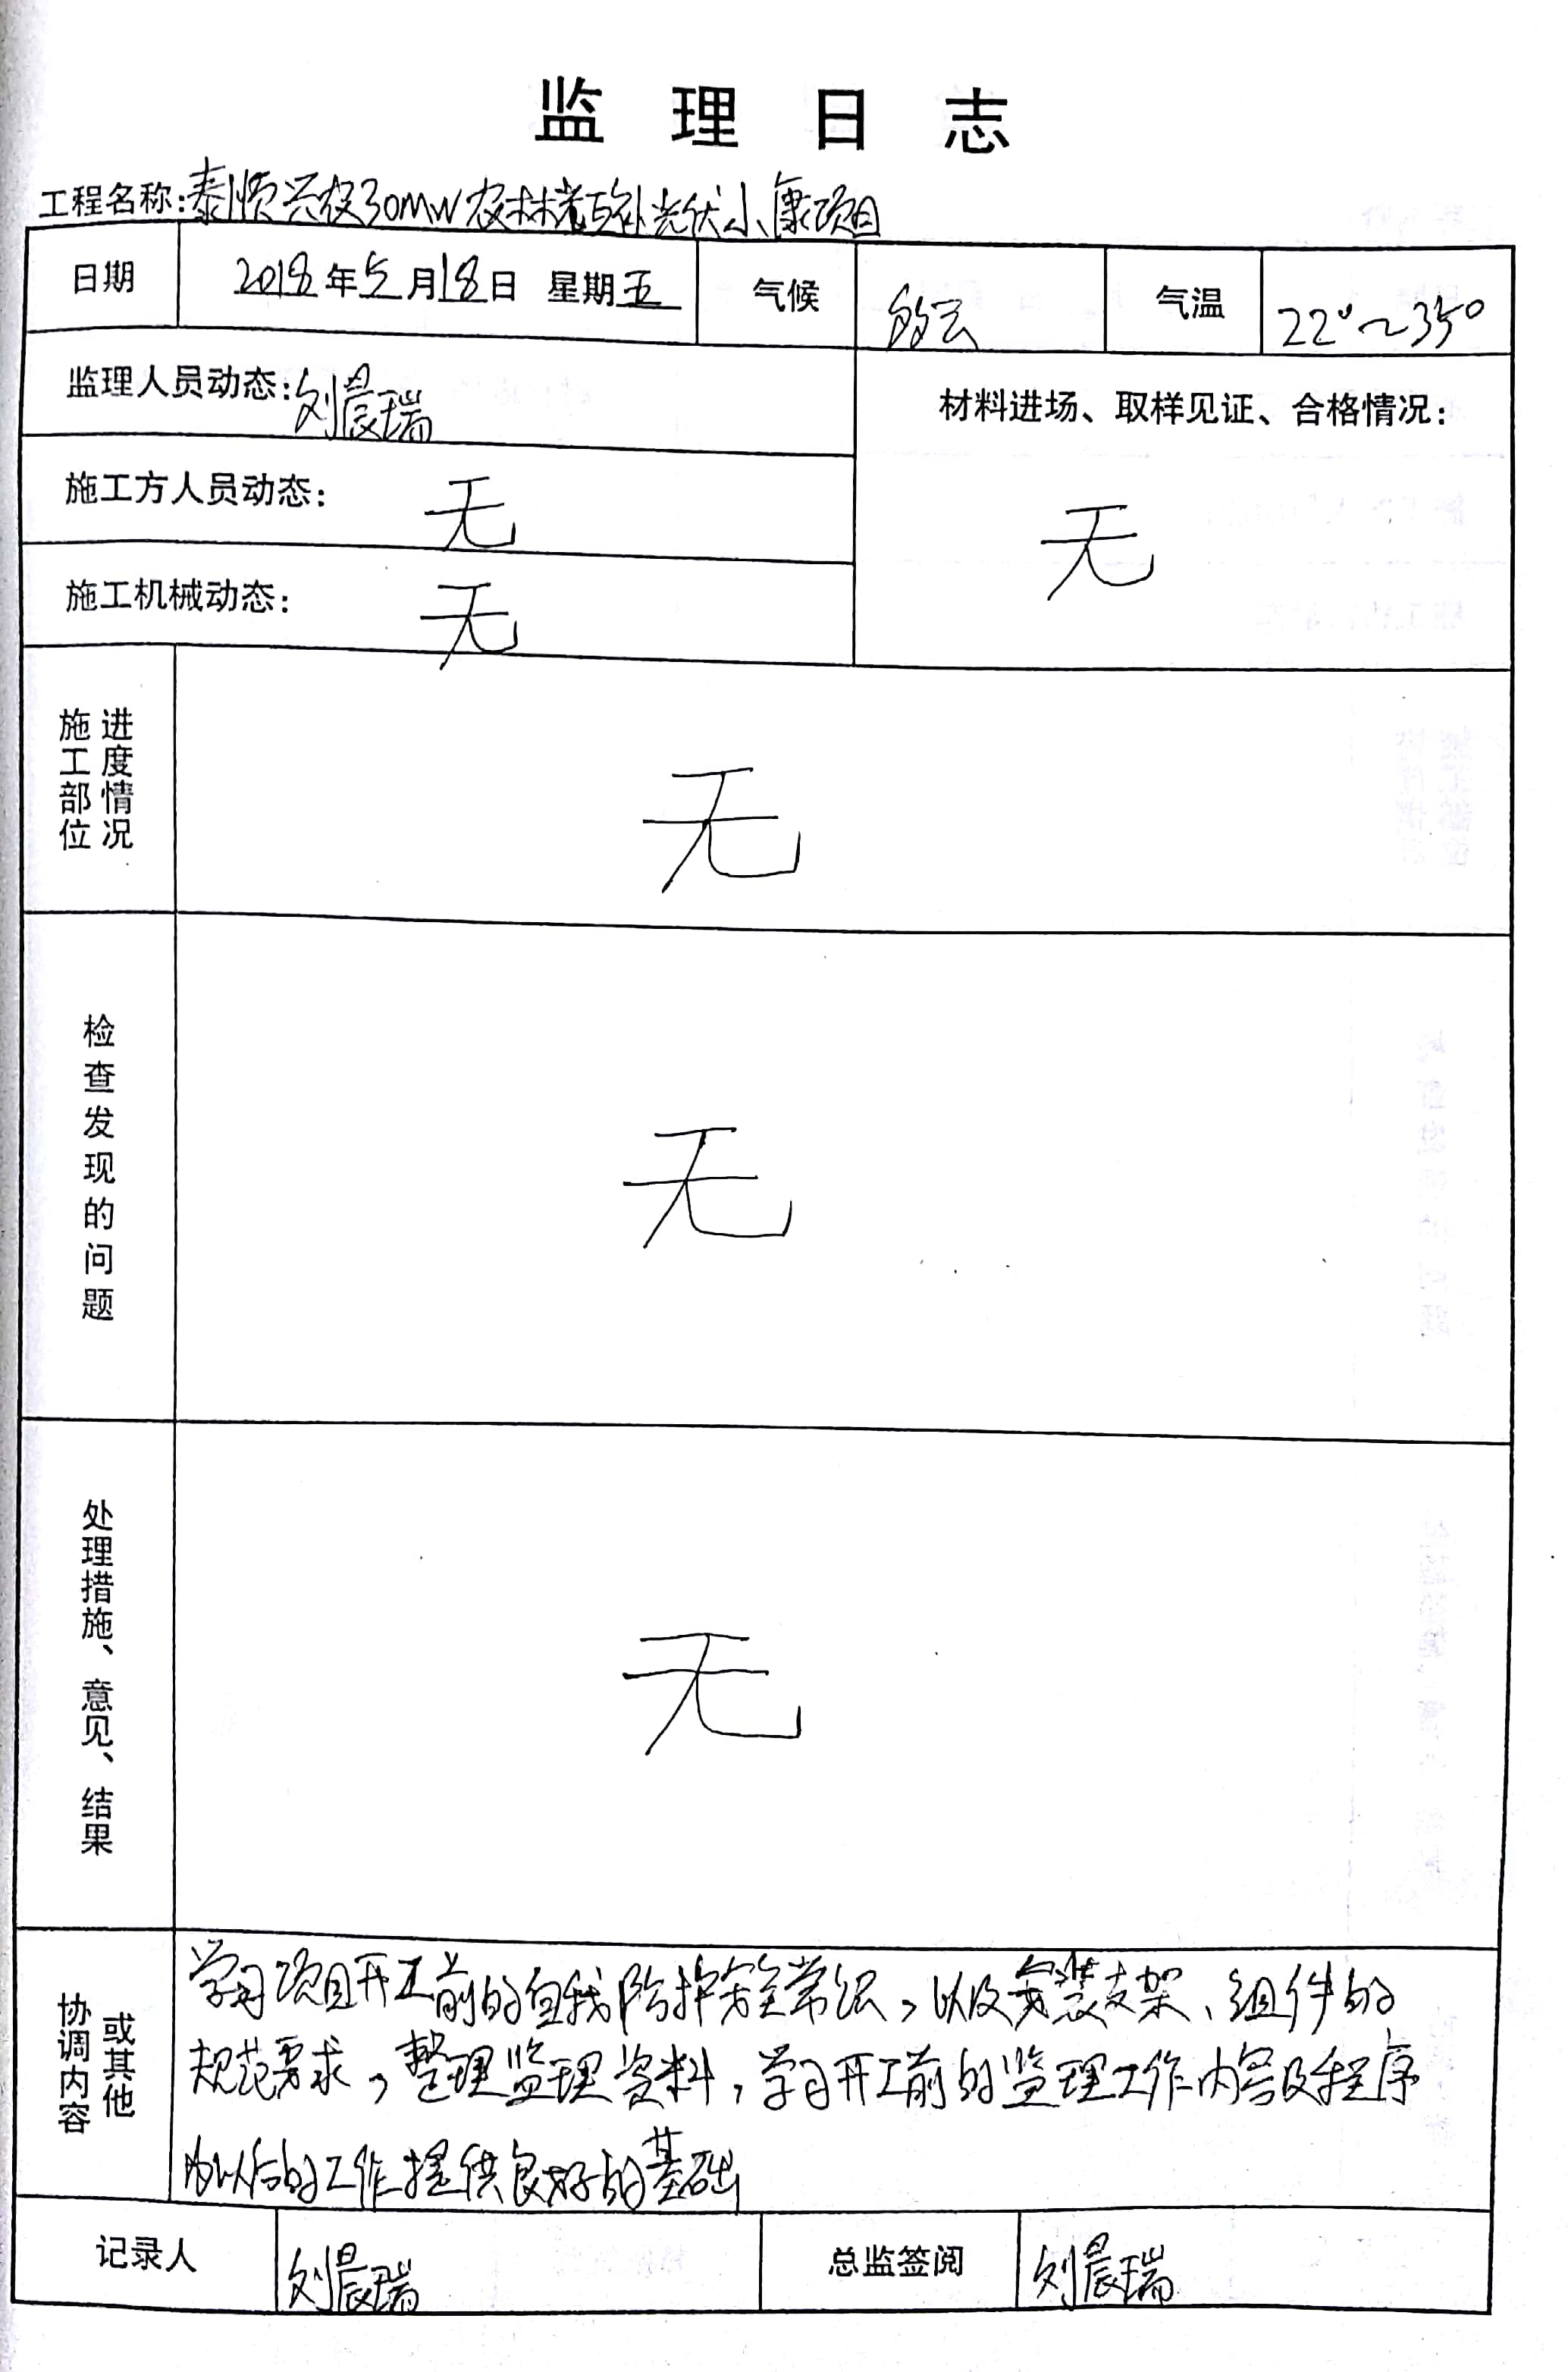 监理日志
工程名称:泰顺兴农30MW农林光互补光伏小康项目
日期 2018年5月18日 星期五 气候 多云 气温 22°~35°
监理人员动态:刘晨瑞
材料进场、取样见证、合格情况:
无
施工方人员动态: 无
施工机械动态: 无
施工部位
进度情况
无
检查发现的问题
无
处理措施、意见、结果
无
协调内容
或其他
学习项目开工前的自我防护安全常识,以及安装支架、组件的
规范要求,整理监理资料,学习开工前的监理工作内容及程序
为以后的工作提供良好的基础
记录人 刘晨瑞 总监签阅 刘晨瑞